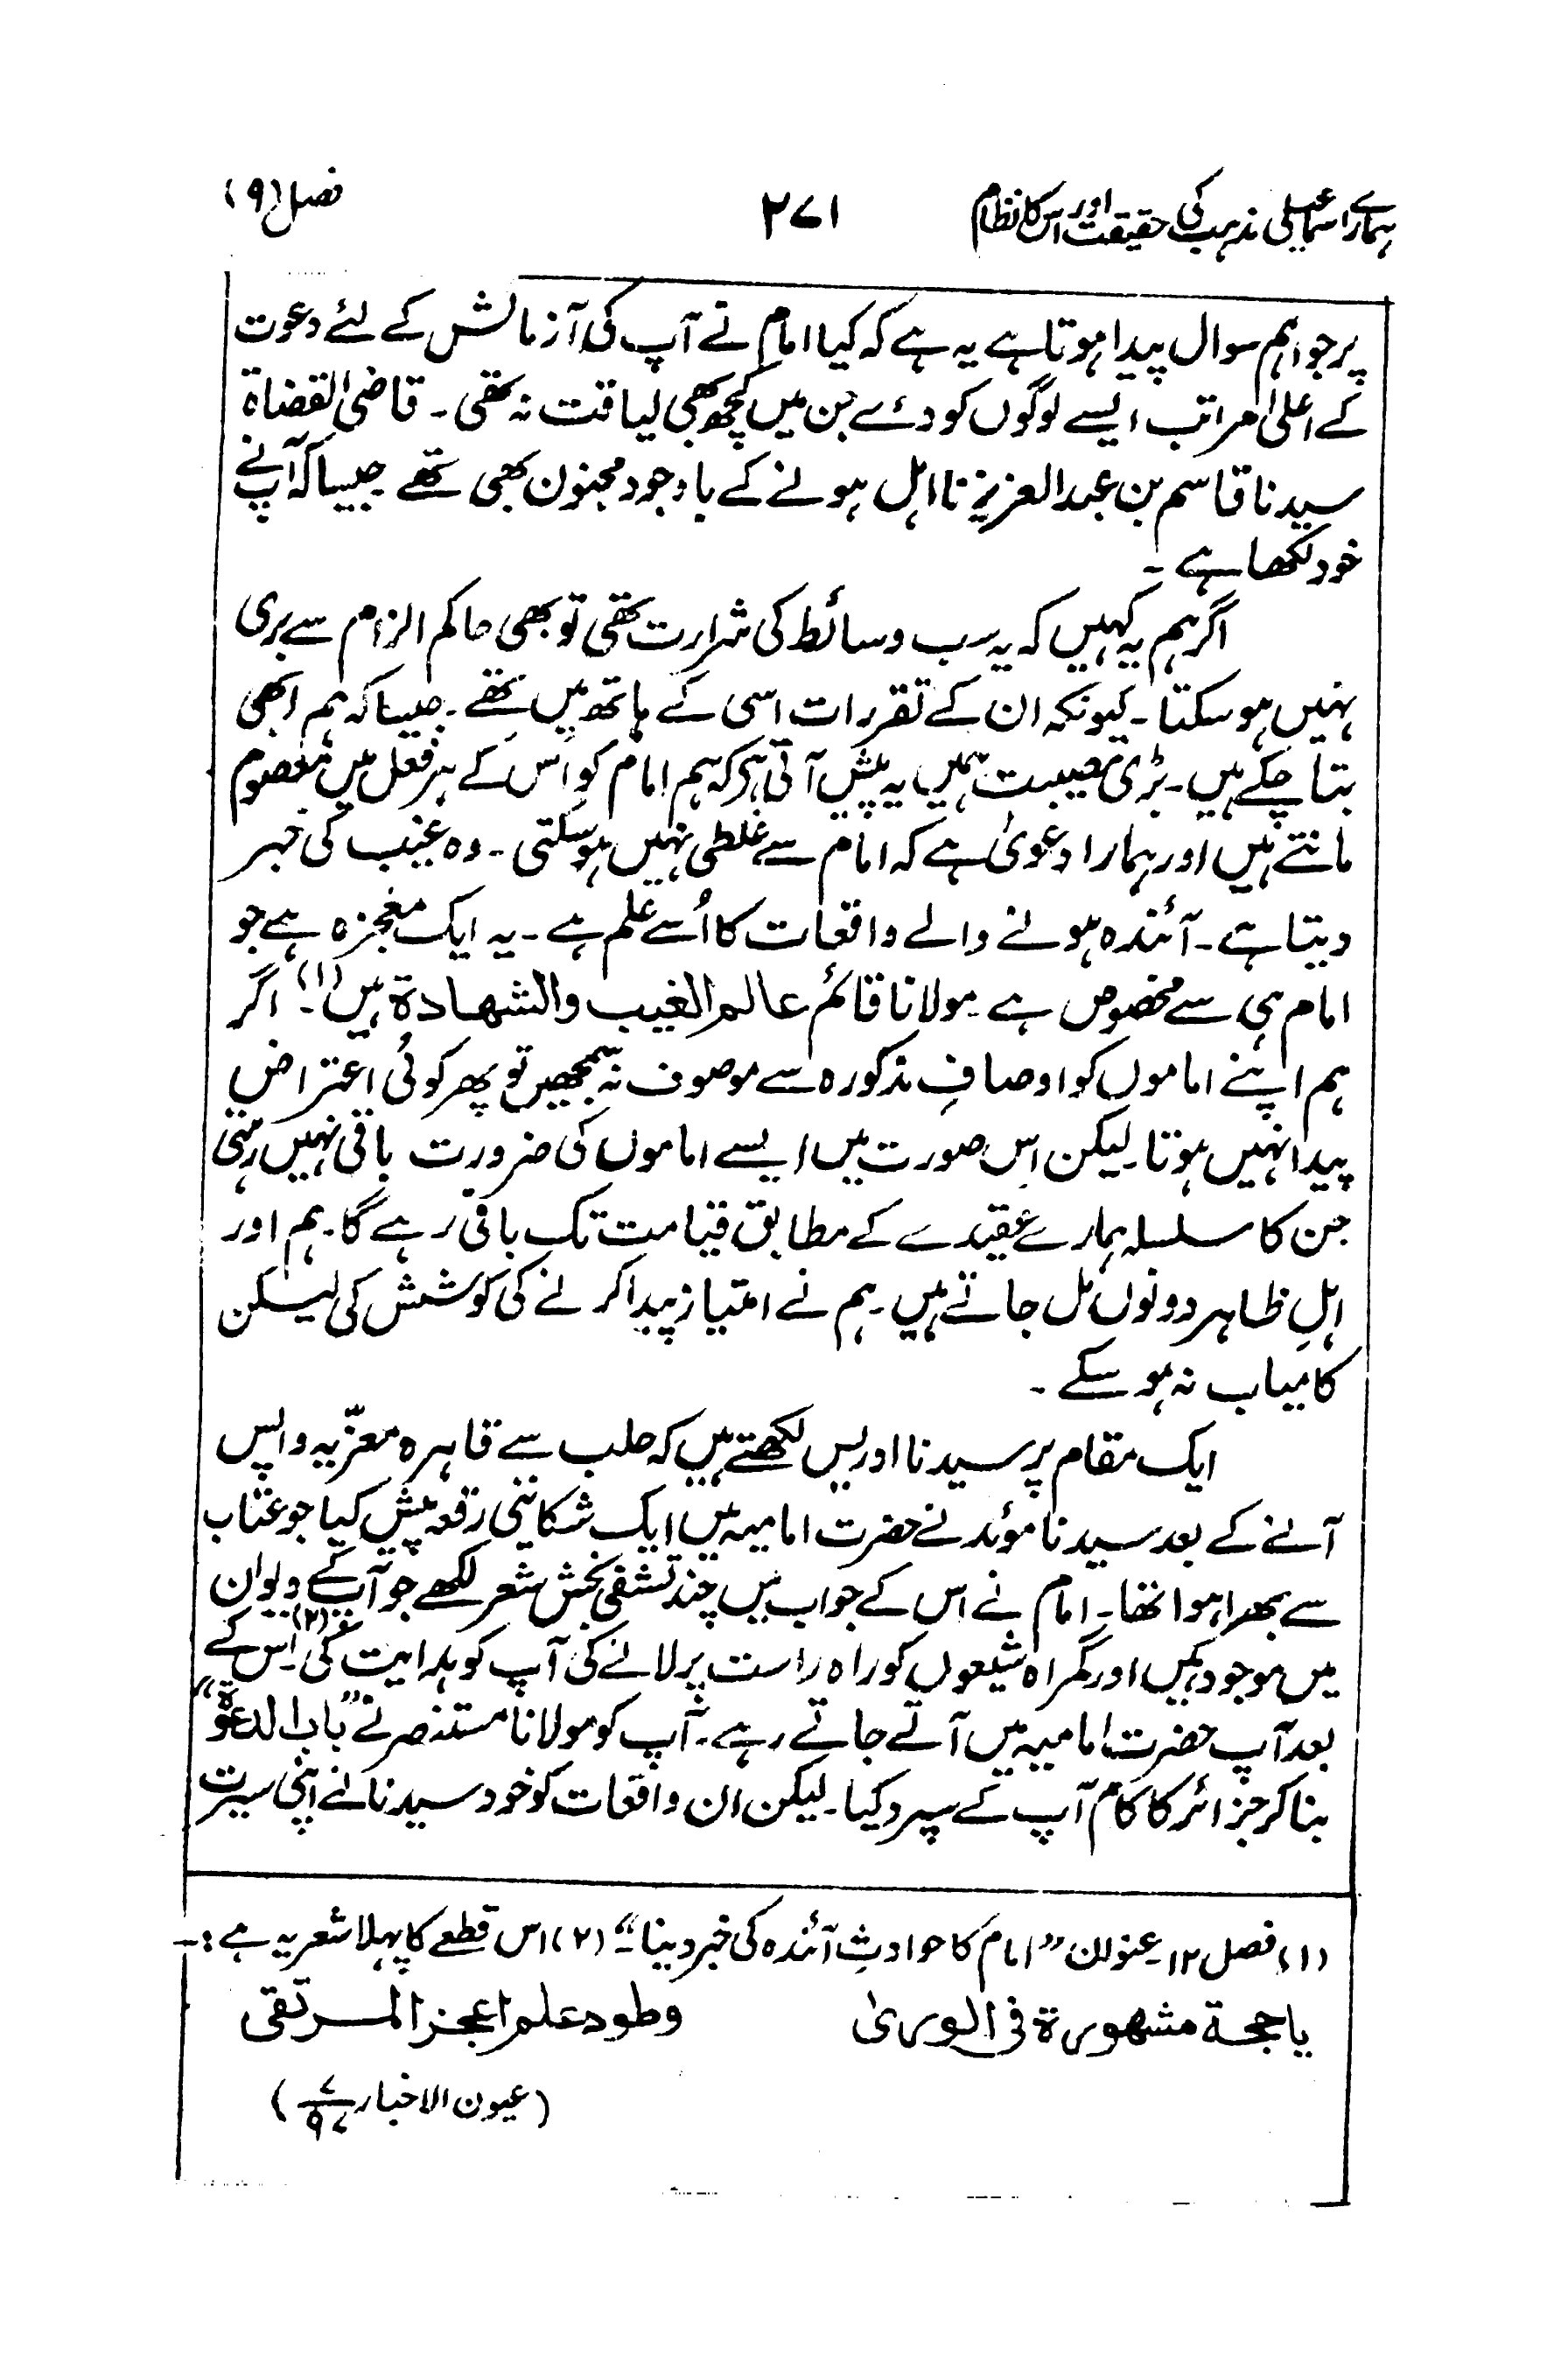 ہمارے اسماعیلی مذہب کی حقیقت اور اس کا نظام ۲۷۱ فصل (۹)
پر جو اہم سوال پیدا ہوتا ہے یہ ہے کہ کیا امام نے آپ کی آزمائش کے لئے دعوت
کے اعلیٰ مراتب ایسے لوگوں کو دئے جن میں کچھ بھی لیاقت نہ تھی ۔ قاضی القضاۃ
سیدنا قاسم بن عبدالعزیز نا اہل ہونے کے باوجود مجنون بھی تھے جیسا کہ آپ نے
خود لکھا ہے ۔
اگر ہم یہ کہیں کہ یہ سب وسائط کی شرارت تھی تو بھی حاکم الزام سے بری
نہیں ہو سکتا ۔ کیونکہ ان کے تقررات اسی کے ہاتھ میں تھے ۔ جیسا کہ ہم ابھی
بتا چکے ہیں ۔ بڑی مصیبت ہمیں یہ پیش آتی ہے کہ ہم امام کو اس کے ہر فعل میں معصوم
مانتے ہیں اور ہمارا دعویٰ ہے کہ امام سے غلطی نہیں ہو سکتی ۔ وہ غیب کی خبر
دیتا ہے ۔ آئندہ ہونے والے واقعات کا اُسے علم ہے ۔ یہ ایک معجزہ ہے جو
امام ہی سے مخصوص ہے ۔ مولانا قائم عالم الغیب والشھادۃ ہیں (۱)۔ اگر
ہم اپنے اماموں کو اوصافِ مذکورہ سے موصوف نہ سمجھیں تو پھر کوئی اعتراض
پیدا نہیں ہوتا ۔ لیکن اس صورت میں ایسے اماموں کی ضرورت باقی نہیں رہتی
جن کا سلسلہ ہمارے عقیدے کے مطابق قیامت تک باقی رہے گا ۔ ہم اور
اہلِ ظاہر دونوں مل جاتے ہیں ۔ ہم نے امتیاز پیدا کرنے کی کوشش کی لیکن
کامیاب نہ ہو سکے ۔
ایک مقام پر سیدنا ادریس لکھتے ہیں کہ حلب سے قاہرہ معزّیہ واپس
آنے کے بعد سیدنا مؤید نے حضرت امامیہ میں ایک شکایتی رقعہ پیش کیا جو عتاب
سے بھرا ہوا تھا ۔ امام نے اس کے جواب میں چند تشفی بخش شعر لکھے جو آپ کے دیوان
میں موجود ہیں اور گمراہ شیعوں کو راہ راست پر لانے کی آپ کو ہدایت کی (۲)۔ اس کے
بعد آپ حضرت امامیہ میں آتے جاتے رہے ۔ آپ کو مولانا مستنصر نے ”باب الدعوۃ“
بنا کر جزائر کا کام آپ کے سپرد کیا ۔ لیکن ان واقعات کو خود سیدنا نے اپنی سیرت
(۱) فصل ۱۲ ۔ عنوان ”امام کا حوادثِ آئندہ کی خبر دینا“ ۔ (۲) اس قطعے کا پہلا شعر یہ ہے :۔
یا حجۃ مشہورۃ فی الوریٰ وطود علم اعجز المرتقی
(عیون الاخبار ۷/۹۷)